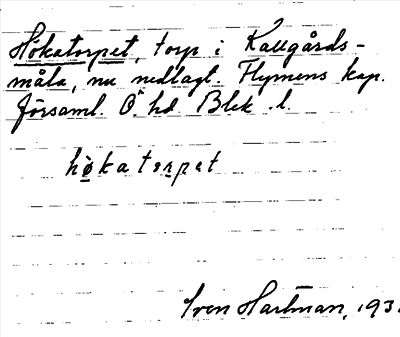 Hökatorpet, torp i Kallgårds-
måla, nu nedlagt. Flymens kap.
församl. Ö. hd Blek. l.
hökatorpet
Sven Hartman, 193